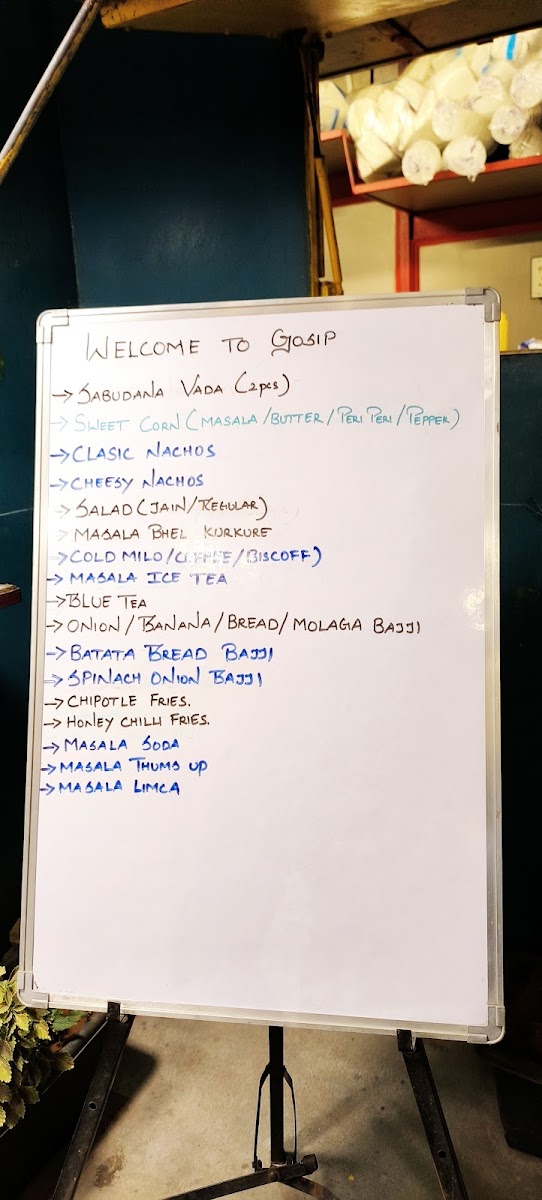 WELCOME TO GOSIP
→ SABUDANA VADA (2pcs)
→ SWEET CORN (MASALA/BUTTER/PERI PERI/PEPPER)
→ CLASIC NACHOS
→ CHEESY NACHOS
→ SALAD (JAIN/REGULAR)
→ MASALA BHEL KURKURE
→ COLD MILO/COFFEE/BISCOFF)
→ MASALA ICE TEA
→ BLUE TEA
→ ONION/BANANA/BREAD/MOLAGIA BAJJI
→ BATATA BREAD BAJJI
→ SPINACH ONION BAJJI
→ CHIPOTLE FRIES.
→ HONEY CHILLI FRIES.
→ MASALA SODA
→ MASALA THUMS UP
→ MASALA LIMCA